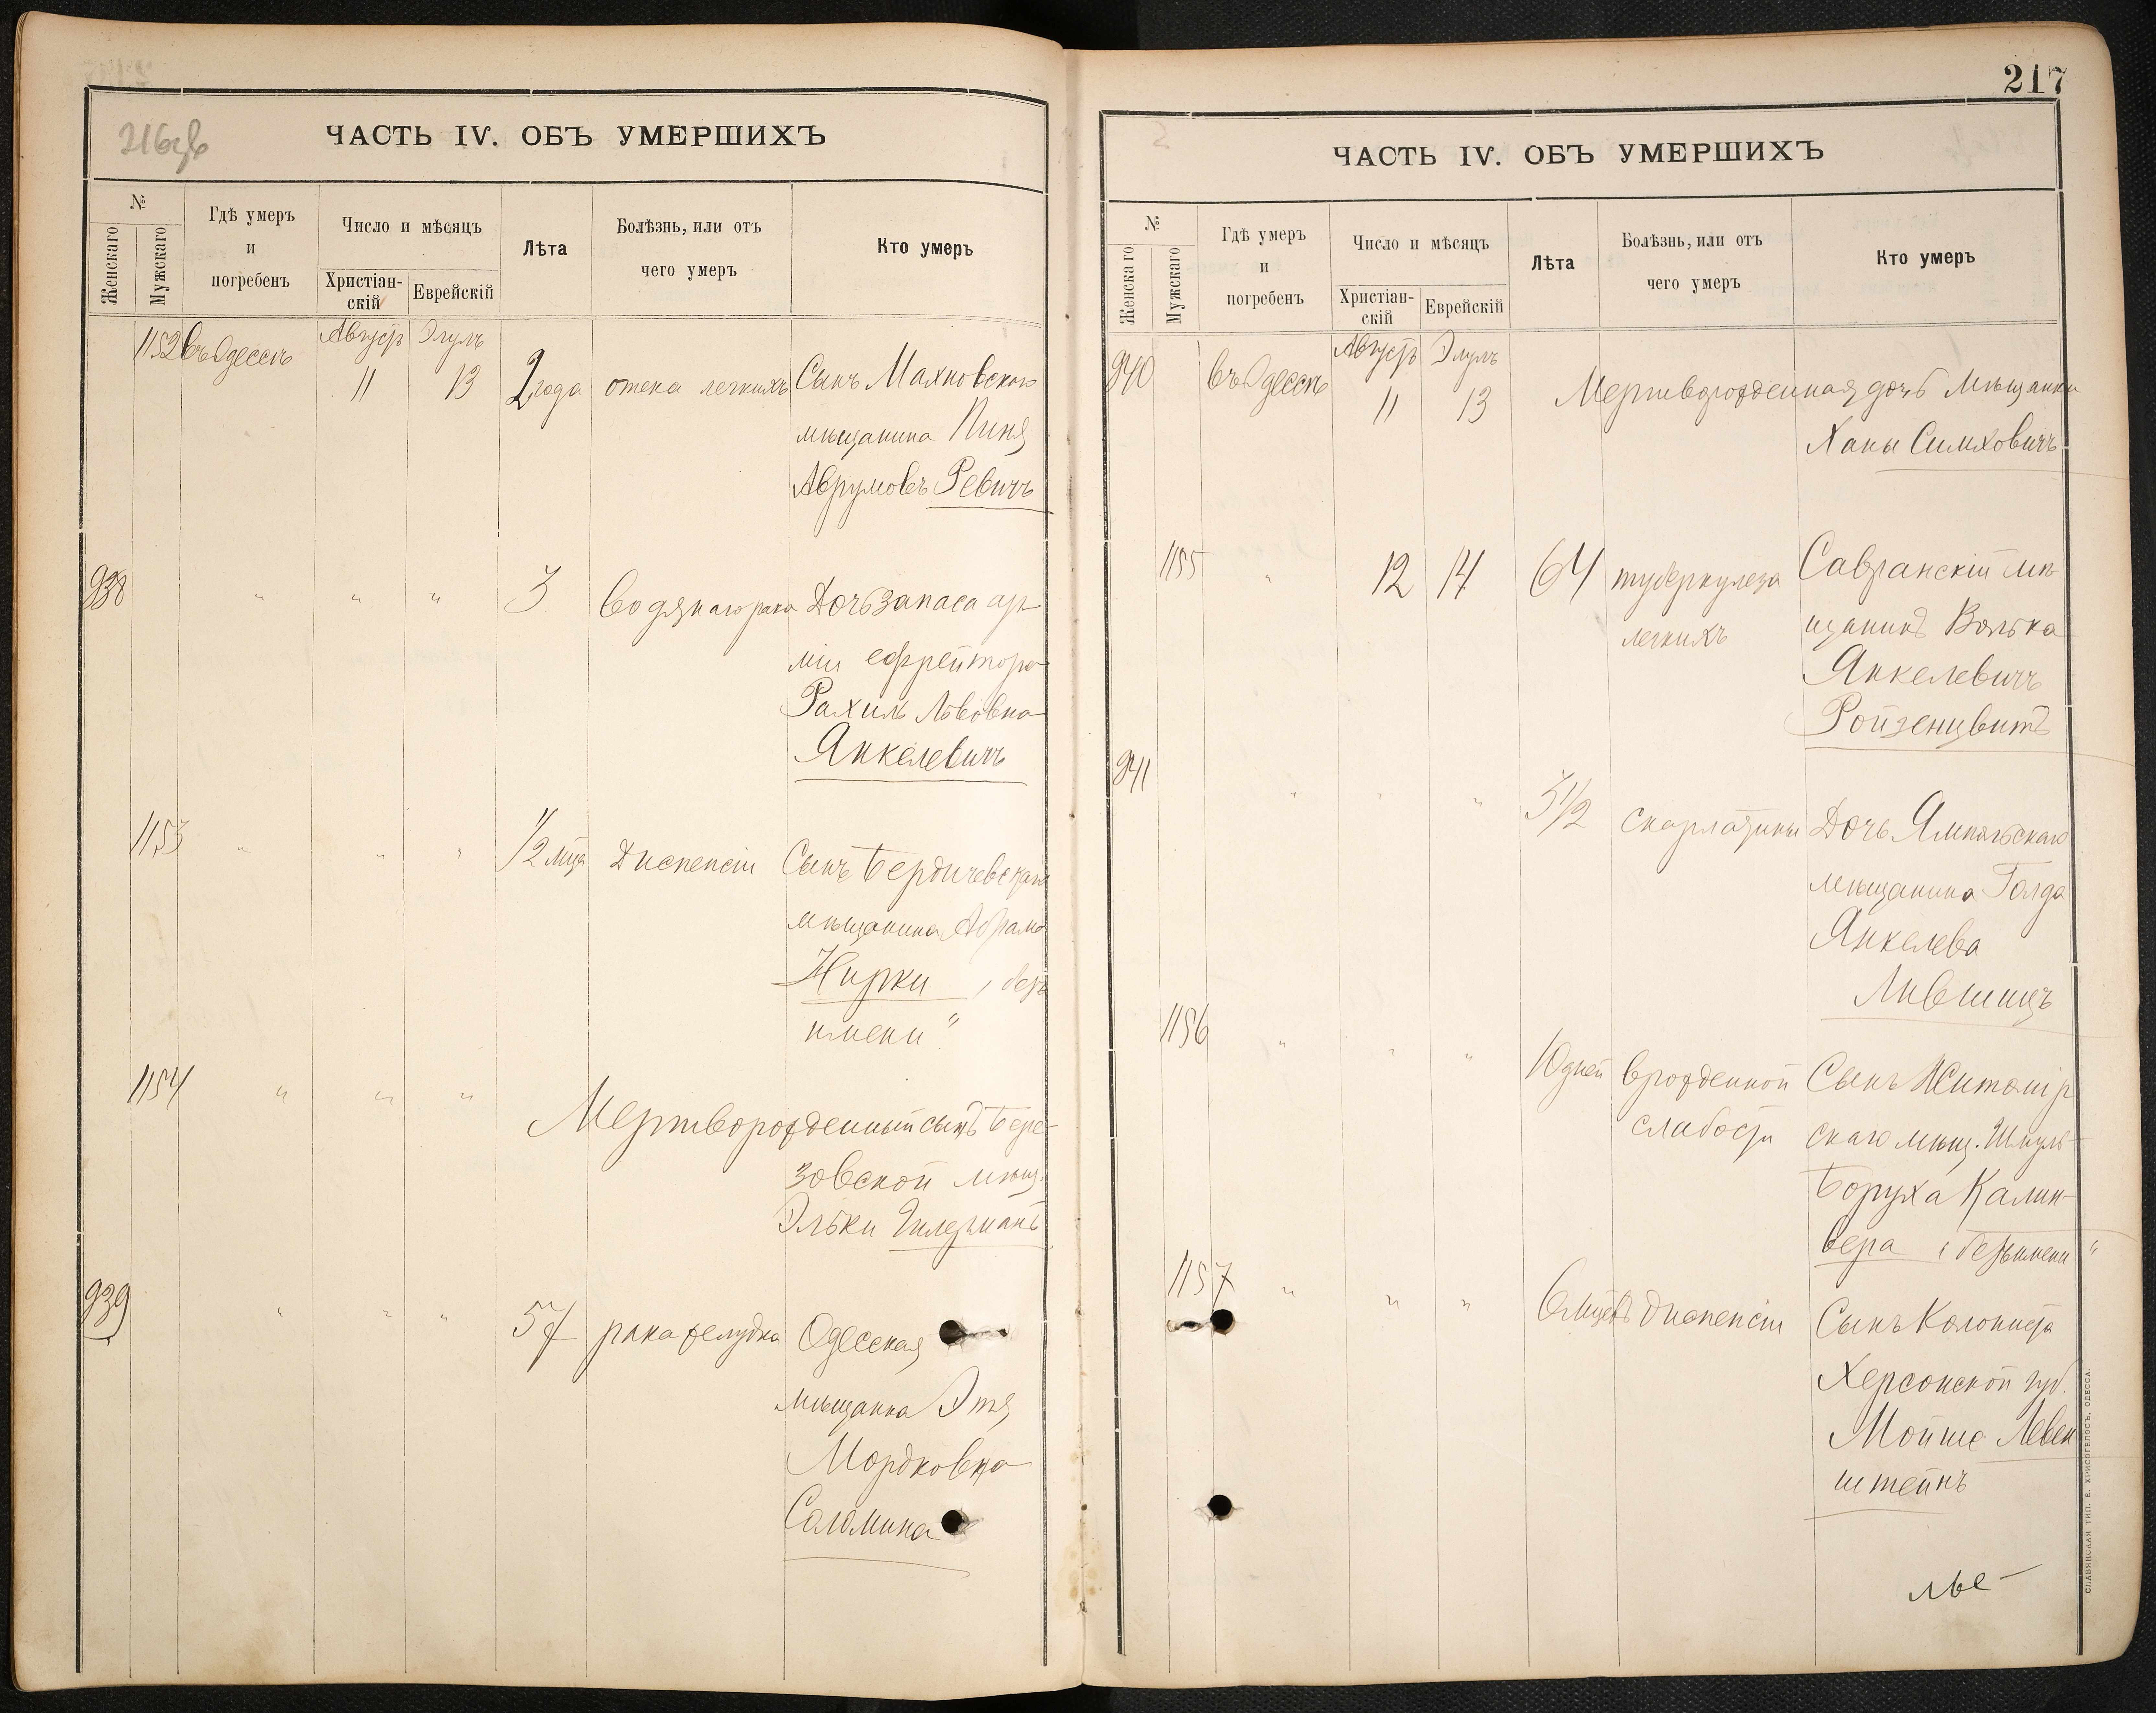 216об
ЧАСТЬ IV. ОБЪ УМЕРШИХЪ
№
Женскаго
Мужскаго
Гдѣ умеръ
и
погребенъ
Число и мѣсяцъ
Христіан-
скій
Еврейскій
Лѣта
Болѣзнь, или отъ
чего умеръ
Кто умеръ
1152 въ Одессѣ Августъ Элулъ
11 13 2 года отека легкихъ Сынъ Махновскаго
мѣщанина Пиня
Аврумовъ Ревичъ
938 " " " 3 водянаго рака Дочь запаса ар-
міи ефрейтора
Рахиль Львовна
Янкелевичъ
1153 " " " 1/2 мца Диспепсіи Сынъ Бердичевскаго
мѣщанина Абрама
Нирки „безъ
имени“
1154 " " " Мертворожденный сынъ Бере-
зовской мѣщ.
Эльки
939 " " " 57 рака желудка Одесская
мѣщанка Этя
Мордковна
Саломина
217
ЧАСТЬ IV. ОБЪ УМЕРШИХЪ
№
Женскаго
Мужскаго
Гдѣ умеръ
и
погребенъ
Число и мѣсяцъ
Христіан-
скій
Еврейскій
Лѣта
Болѣзнь, или отъ
чего умеръ
Кто умеръ
940 въ Одессѣ Августъ Элулъ
11 13 Мертворожденная дочь мѣщанки
Ханы Симховичъ
1155 " 12 14 64 туберкулеза Савранскій мѣ-
легкихъ щанинъ Волька
Янкелевичъ
Ройзенцвитъ
941 " " " 3 1/2 скарлатины Дочь Ямпольскаго
мѣщанина Голда
Янкелева
Лившицъ
1156 " " " 10 дней врожденной Сынъ Житомір
слабости скаго мѣщ. Шмуль-
Боруха Калин-
вера „безъ имени“
1157 " " " 6 мцевъ диспепсіи Сынъ Колониста
Херсонской губ.
Мойше Левен
штейнъ
СЛАВЯНСКАЯ ТИП. Е. ХРИСОГЕЛОСЪ, ОДЕССА.